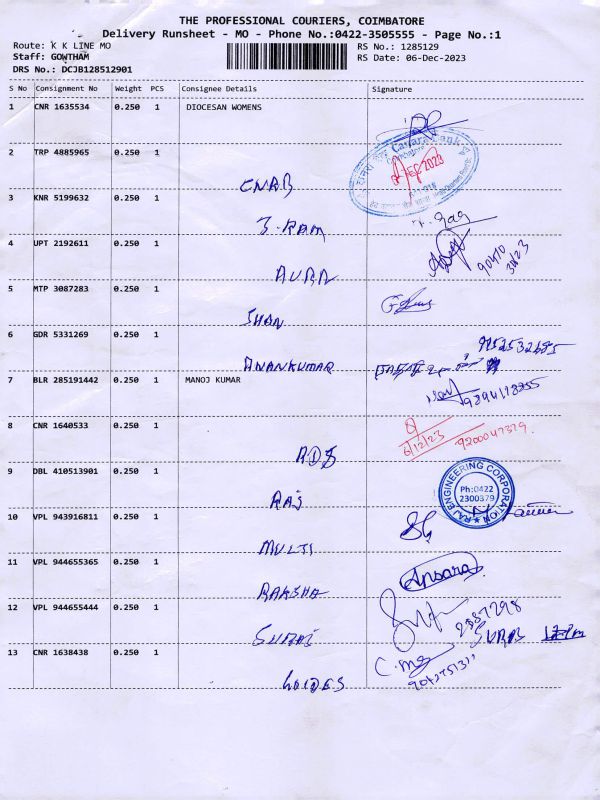 THE PROFESSIONAL COURIERS, COIMBATORE
Delivery Runsheet - MO - Phone No.:0422-3505555 - Page No.:1
Route: K K LINE MO
RS No.: 1285129
Staff: GOWTHAM
RS Date: 06-Dec-2023
DRS No.: DCJB128512901
S No Consignment No Weight PCS Consignee Details Signature
1 CNR 1635534 0.250 1 DIOCESAN WOMENS
Canara Bank
2 TRP 4885965 0.250 1
CNRB
3 KNR 5199632 0.250 1
J. RAM
4 UPT 2192611 0.250 1
5 MTP 3087283 0.250 1
SHAN
6 GDR 5331269 0.250 1
ANANKUMAR
7 BLR 285191442 0.250 1 MANOJ KUMAR
8 CNR 1640533 0.250 1
6/12/23
9 DBL 410513901 0.250 1
RAJ
RAJ ENGINEERING CORPORATION
Ph:0422
2300379
10 VPL 943916811 0.250 1
MULTI
11 VPL 944655365 0.250 1
RAKSHA
Ansara
12 VPL 944655444 0.250 1
SURAJ
13 CNR 1638438 0.250 1